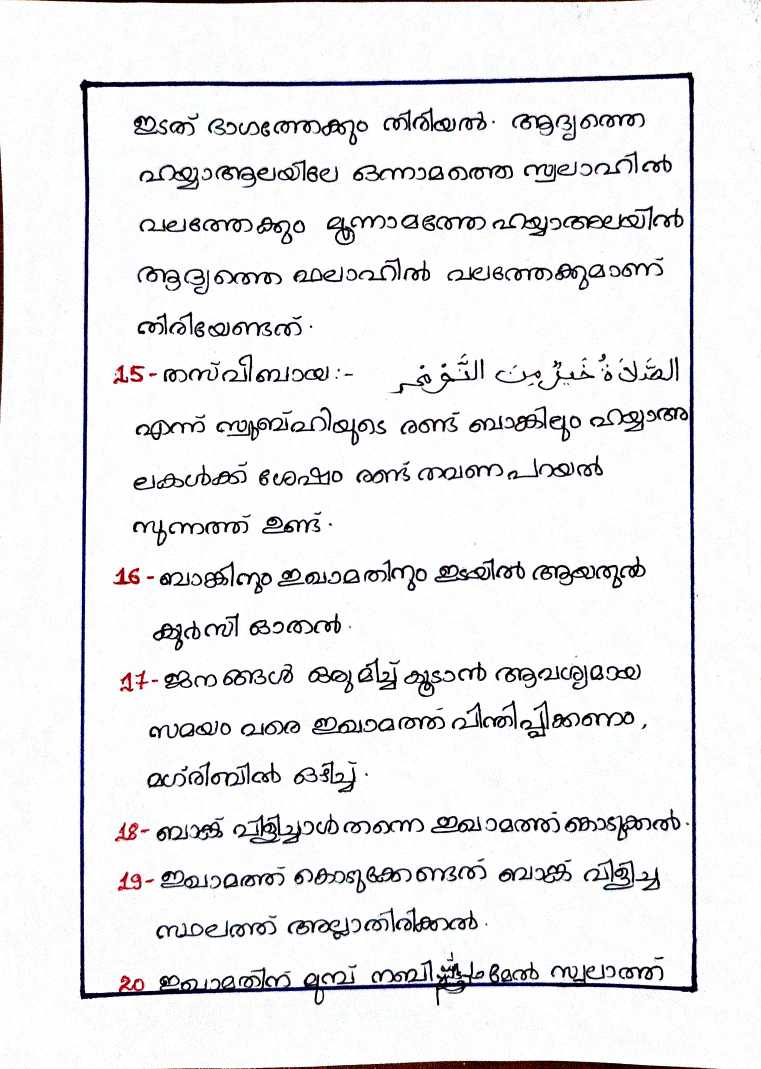 ഇടത് ഭാഗത്തേക്കും തിരിയൽ. ആദ്യത്തെ
ഹയ്യാആലയിലേ ഒന്നാമത്തെ സ്വലാഹിൽ
വലത്തേക്കും മൂന്നാമത്തേ ഹയ്യാഅലയിൽ
ആദ്യത്തെ ഫലാഹിൽ വലത്തേക്കുമാണ്
തിരിയേണ്ടത്.
15-തസ്‌വീബായ :- الصَّلَاةُ خَيْرٌ مِنَ النَّوْمِ
എന്ന് സുബ്ഹിയുടെ രണ്ട് ബാങ്കിലും ഹയ്യാഅ
ലകൾക്ക് ശേഷം രണ്ട് തവണ പറയൽ
സുന്നത്ത് ഉണ്ട്.
16-ബാങ്കിനും ഇഖാമതിനും ഇടയിൽ ആയതുൽ
കുർസി ഓതൽ.
17-ജനങ്ങൾ ഒരുമിച്ച് കൂടാൻ ആവശ്യമായ
സമയം വരെ ഇഖാമത്ത് പിന്തിപ്പിക്കണം,
മഗ്‌രിബിൽ ഒഴിച്ച്.
18-ബാങ്ക് വിളിച്ചാൾ തന്നെ ഇഖാമത്ത് കൊടുക്കൽ.
19-ഇഖാമത്ത് കൊടുക്കേണ്ടത് ബാങ്ക് വിളിച്ച
സ്ഥലത്ത് അല്ലാതിരിക്കൽ.
20 ഇഖാമതിന് മുമ്പ് നബി ﷺ മേൽ സ്വലാത്ത്